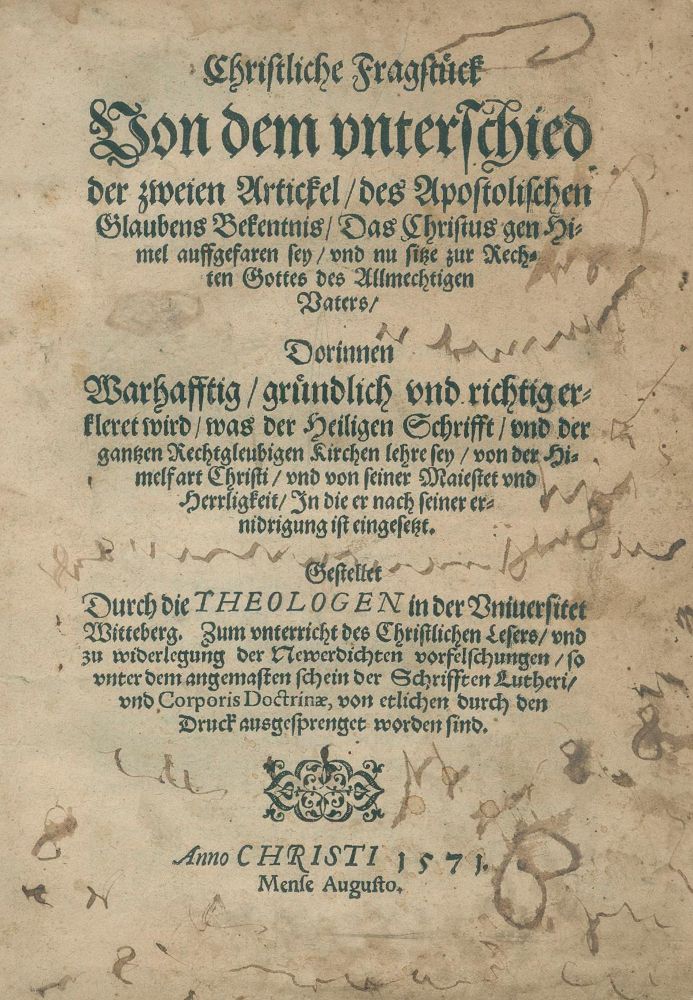 Christliche Fragstück
Von dem vnterschied
der zweien Artickel / des Apostolischen
Glaubens Bekentnis / Das Christus gen Hi-
mel auffgefaren sey / vnd nu sitze zur Rech-
ten Gottes des Allmechtigen
Vaters /
Dorinnen
Warhafftig / gründlich vnd richtig er-
kleret wird / was der Heiligen Schrifft / vnd der
gantzen Rechtgleubigen Kirchen lehre sey / von der Hi-
melfart Christi / vnd von seiner Maiestet vnd
Herrligkeit / In die er nach seiner er-
nidrigung ist eingesetzt.
Gestellet
Durch die THEOLOGEN in der Vniuersitet
Witteberg. Zum vnterricht des Christlichen Lesers / vnd
zu widerlegung der Newerdichten vorfelschungen / so
vnter dem angemasten schein der Schrifften Lutheri /
vnd Corporis Doctrinæ, von etlichen durch den
Druck ausgesprenget worden sind.
Anno CHRISTI 1571.
Mense Augusto.